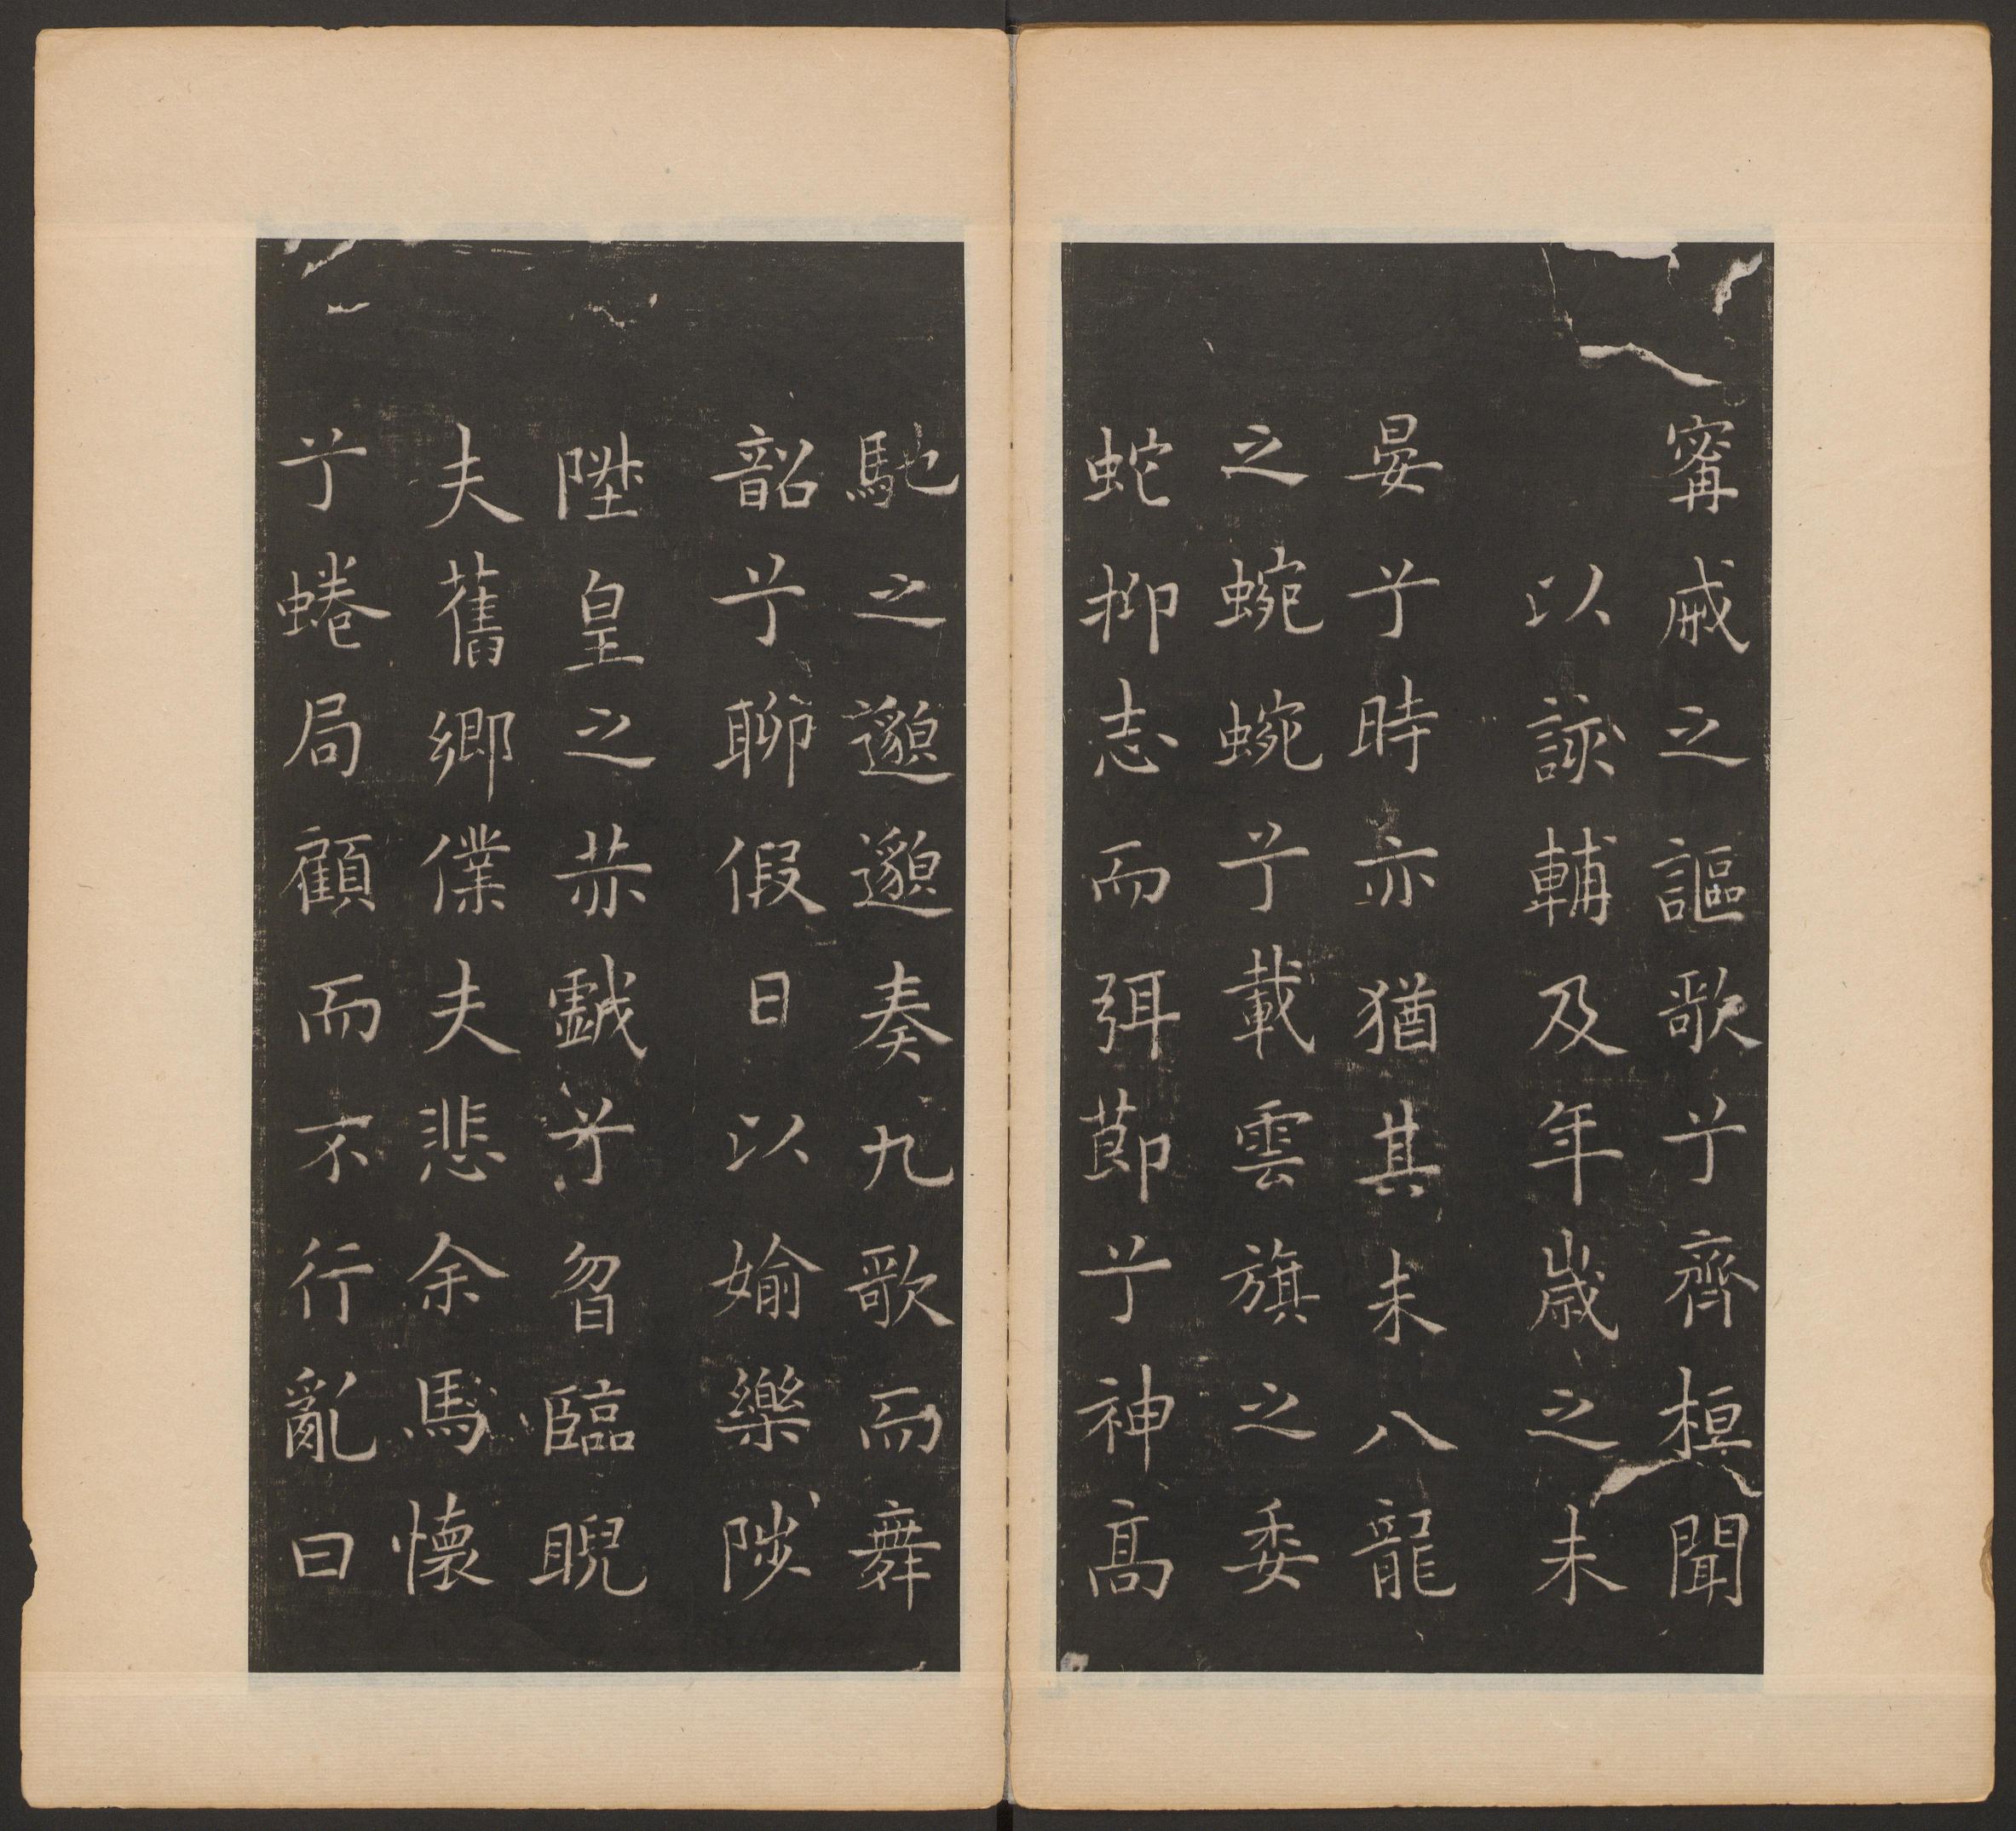 甯戚之謳歌兮齊桓聞
以該輔及年歲之未
晏兮時亦猶其未八龍
之蜿蜿兮載雲旗之委
蛇抑志而弭節兮神高
馳之邈邈奏九歌而舞
韶兮聊假日以媮樂陟
陞皇之赫戲兮忽臨睨
夫舊鄉僕夫悲余馬懷
兮蜷局顧而不行亂曰